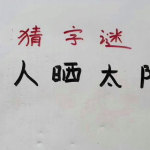 猜字谜
人晒太